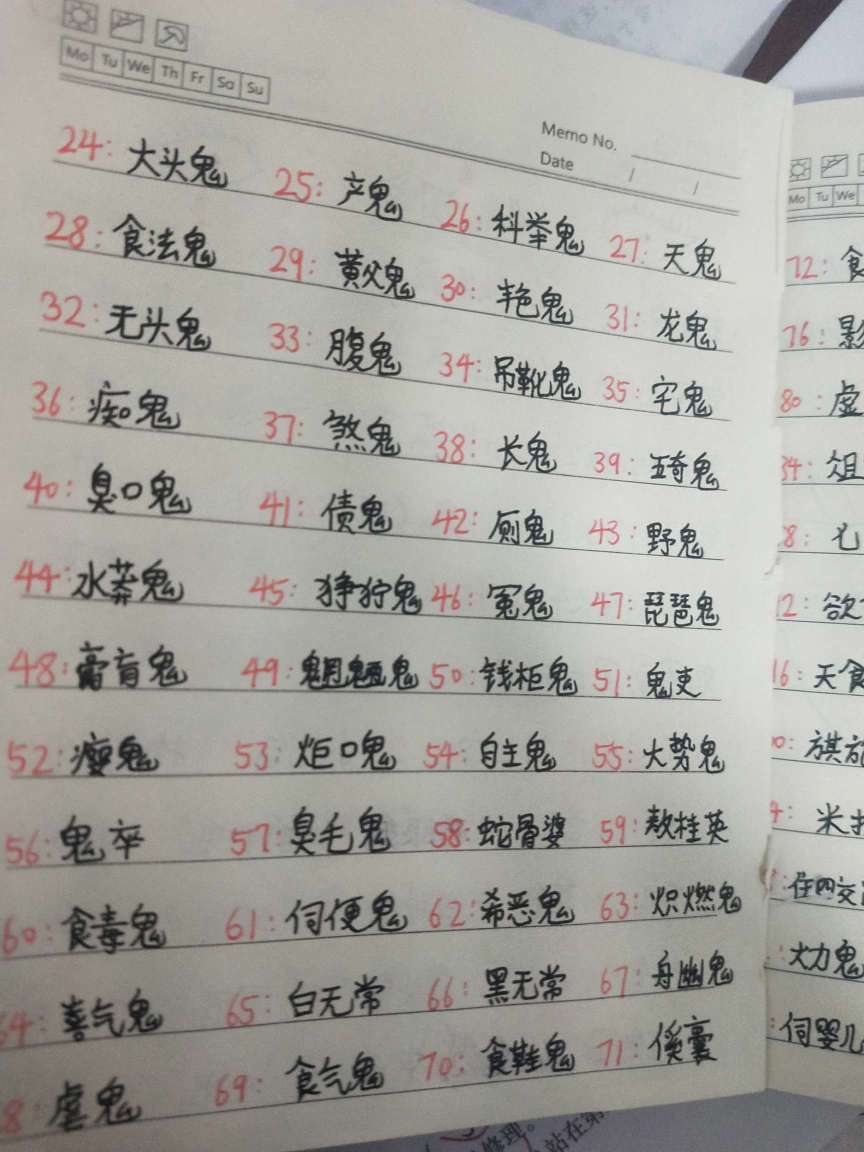 Mo Tu We Th Fr Sa Su
Memo No.
Date / /
24: 大头鬼 25: 产鬼 26: 科举鬼 27: 天鬼
28: 食法鬼 29: 黄父鬼 30: 艳鬼 31: 龙鬼
32: 无头鬼 33: 腹鬼 34: 吊靴鬼 35: 宅鬼
36: 痴鬼 37: 煞鬼 38: 长鬼 39: 五奇鬼
40: 臭口鬼 41: 债鬼 42: 厕鬼 43: 野鬼
44: 水莽鬼 45: 狰狞鬼 46: 冤鬼 47: 琵琶鬼
48: 膏肓鬼 49: 魍魉鬼 50: 钱柜鬼 51: 鬼吏
52: 瘿鬼 53: 炬口鬼 54: 自主鬼 55: 大势鬼
56: 鬼卒 57: 臭毛鬼 58: 蛇骨婆 59: 敖桂英
60: 食毒鬼 61: 伺便鬼 62: 希恶鬼 63: 炽燃鬼
64: 喜气鬼 65: 白无常 66: 黑无常 67: 舟幽鬼
8: 虐鬼 69: 食气鬼 70: 食鞋鬼 71: 傒囊
Mo Tu We
72: 食
76: 影
80: 虚
84: 俎
8:
2: 欲
16: 天食
0: 旗
4: 米
: 住四交
: 火力鬼
: 伺婴儿
修理。
站在第